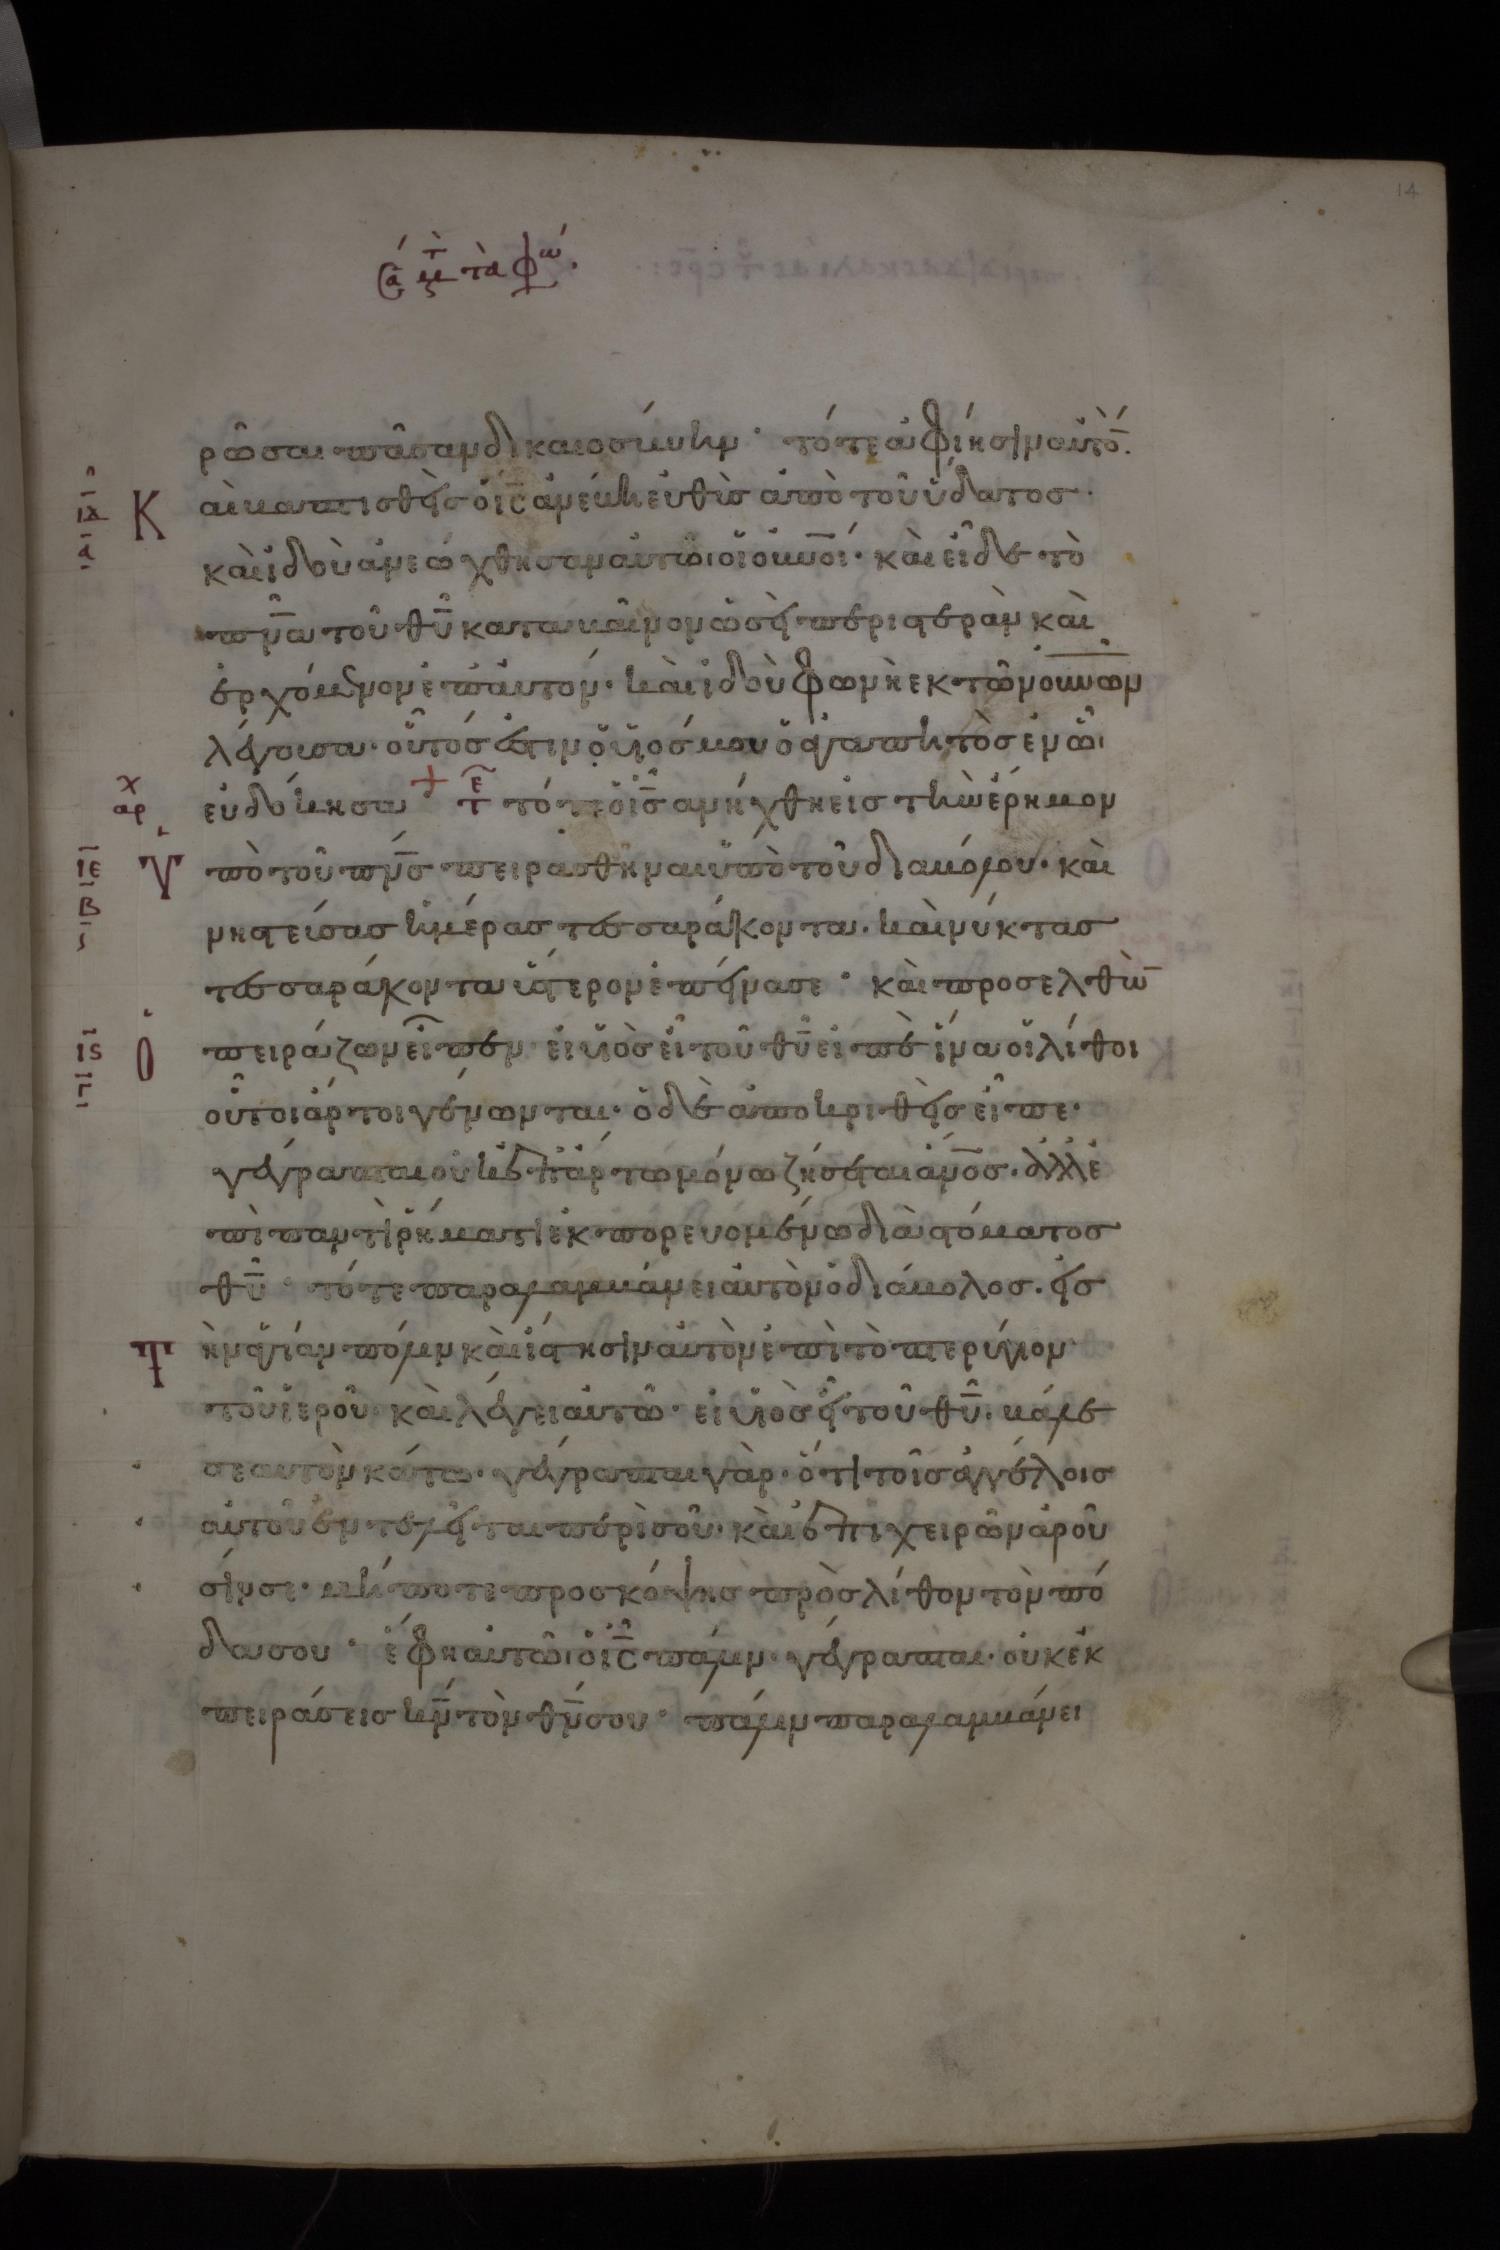 14
Σα μετ τὰ φω.
ρῶσαι πᾶσαν δικαιοσύνην· τότε ἀφίησιν αὐτὸ̄.
ΙΔ Α Κ αὶ βαπτισθεὶς ὁ ις ἀνέβη εὐθὺς ἀπὸ τοῦ ὕδατος·
καὶ ἰδοὺ ἀνεώχθησαν αὐτῶι οἱ οὐνοί· καὶ εἶδε τὸ
πνα τοῦ θυ καταβαῖνον ὡσεὶ περιστερὰν καὶ
ἐρχόμενον ἐπ' αὐτόν· καὶ ἰδοὺ φωνὴ ἐκ τῶν οὐνων
λέγουσα· οὗτός ἐστιν ὁ υἱός μου ὁ ἀγαπητὸς ἐν ὧι
εὐδόκησα + τε τότε ὁ ις ἀνήχθη εἰς τὴν ἔρημον
αρχ ΙΕ Β Υ πὸ τοῦ πνς πειρασθῆναι ὑπὸ τοῦ διαβόλου· καὶ
νηστείσας ἡμέρας τεσσαράκοντα· καὶ νύκτας
τεσσαράκοντα ὕστερον ἐπείνασε· καὶ προσελθὼ̄
ΙϚ Γ Ὁ πειράζων εἶπεν· εἰ υἱὸς εἶ τοῦ θυ εἰπὲ ἵνα οἱ λίθοι
οὗτοι ἄρτοι γένωνται· ὁ δὲ ἀποκριθεὶς εἶπε·
γέγραπται οὐκ ἐπ' ἄρτω μόνω ζήσεται ἄνος· ἀλλ' ἐ
πὶ παντὶ ῥήματι ἐκπορευομένω διὰ στόματος
θυ· τότε παραλαμβάνει αὐτὸν ὁ διάβολος· εἰς
Τ ὴν ἁγίαν πόλιν καὶ ἵστησιν αὐτὸν ἐπὶ τὸ πτερύγιον
τοῦ ἱεροῦ· καὶ λέγει αὐτῶ· εἰ υἱὸς εἶ τοῦ θυ· βάλε
σεαυτὸν κάτω· γέγραπται γὰρ· ὅτι τοῖς ἀγγέλοις
αὐτοῦ ἐντελεῖται περὶ σοῦ· καὶ ἐπὶ χειρῶν ἀροῦ
σίν σε· μήποτε προσκόψης πρὸς λίθον τὸν πό
δα σου· ἔφη αὐτῶι ὁ ις πάλιν· γέγραπται· οὐκ ἐκ
πειράσεις κν τὸν θν σου· πάλιν παραλαμβάνει